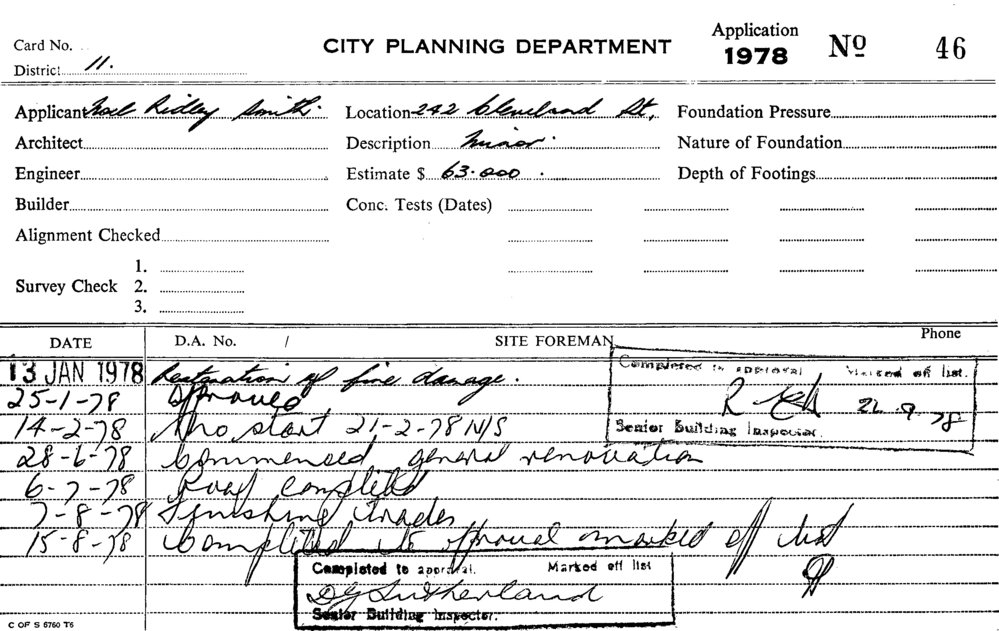 Application
Card No. CITY PLANNING DEPARTMENT 1978 Nº 46
District 11.
Applicant Noel Ridley Smith. Location 242 Cleveland St, Foundation Pressure
Architect Description Minor. Nature of Foundation
Engineer Estimate $ 63.000 . Depth of Footings
Builder Conc. Tests (Dates)
Alignment Checked
1.
Survey Check 2.
3.
DATE D.A. No. / SITE FOREMAN Phone
13 JAN 1978 Restoration of fire damage.
Completed to approval Marked off list.
25-1-78 Approved
22.9.78
14-2-78 No start 21-2-78 N/S
Senior Building Inspector.
28-6-78 Commensed general renovation
6-7-78 Roof completed
7-8-78 Finishing trades
15-8-78 Completed to approval marked off list
Completed to approval. Marked off list
D G Sutherland
Senior Building Inspector.
C OF S 5760 T6